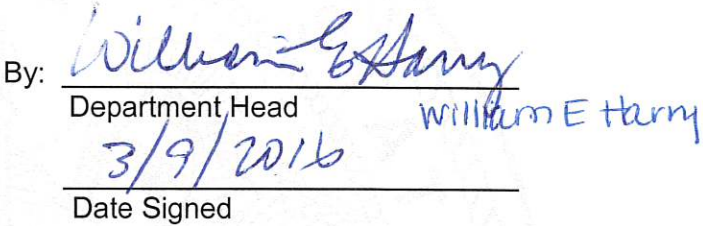 By: William E Harry
Department Head
William E Harry
3/9/2016
Date Signed